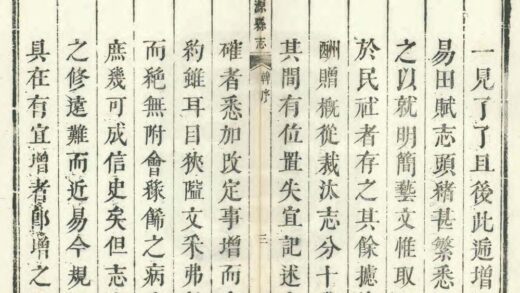 一見了了且後此遞增
易田賦志頭緒甚繁悉
之以就明簡藝文惟取
於民社者存之其餘摭
酬贈概從裁汰志分十
其間有位置失宜記述
源縣志
韓序
三
確者悉加改定事增而
約雖耳目狹隘文采弗
而絕無附會緣飾之病
庶幾可成信史矣但志
之修遠難而近易今規
具在有宜增者卽增之